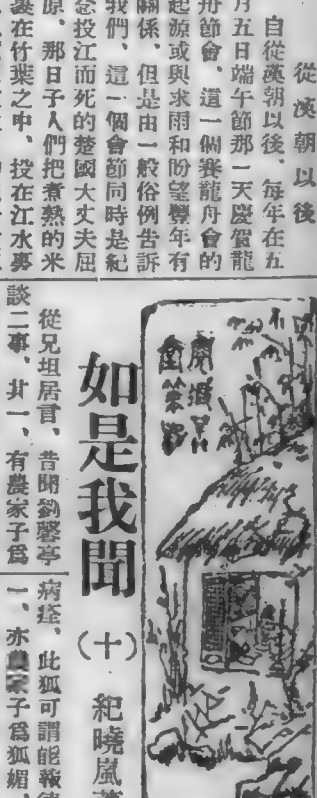 從漢朝以後
自從漢朝以後、每年在五
月五日端午節那一天慶賀龍
舟節會、這一個賽龍舟會的
起源或與求雨和盼望豐年有
關係、但是由一般俗例告訴
我們、這一個會節同時是紀
念投江而死的楚國大丈夫屈
原、那日子人們把煮熟的米
裹在竹葉之中、投在江水裏
如是我聞
（十）
紀曉嵐著
從兄坦居言、昔聞劉馨亭
談二事、廾一、有農家子爲
病痊、此狐可謂能報德
一、亦農家子爲狐媚、